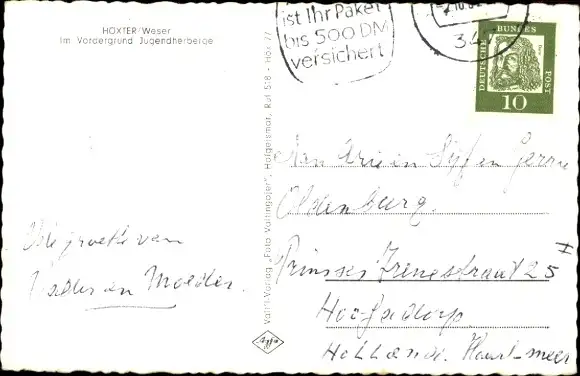 HÖXTER/Weser
Im Vordergrund Jugendherberge
ist Ihr Paket
bis 500 DM
versichert
34
DEUTSCHE BUNDESPOST
10
Vele groeten van
Vader en Moeder.
Vahti-Verlag „Foto Vahlingojer“, Hofgeismar, Ruf 518 - Höx 77
Agfa
Oldenburg
Prinses Irenestraat 25 I
Hoofddorp
Holland. Haarl-meer